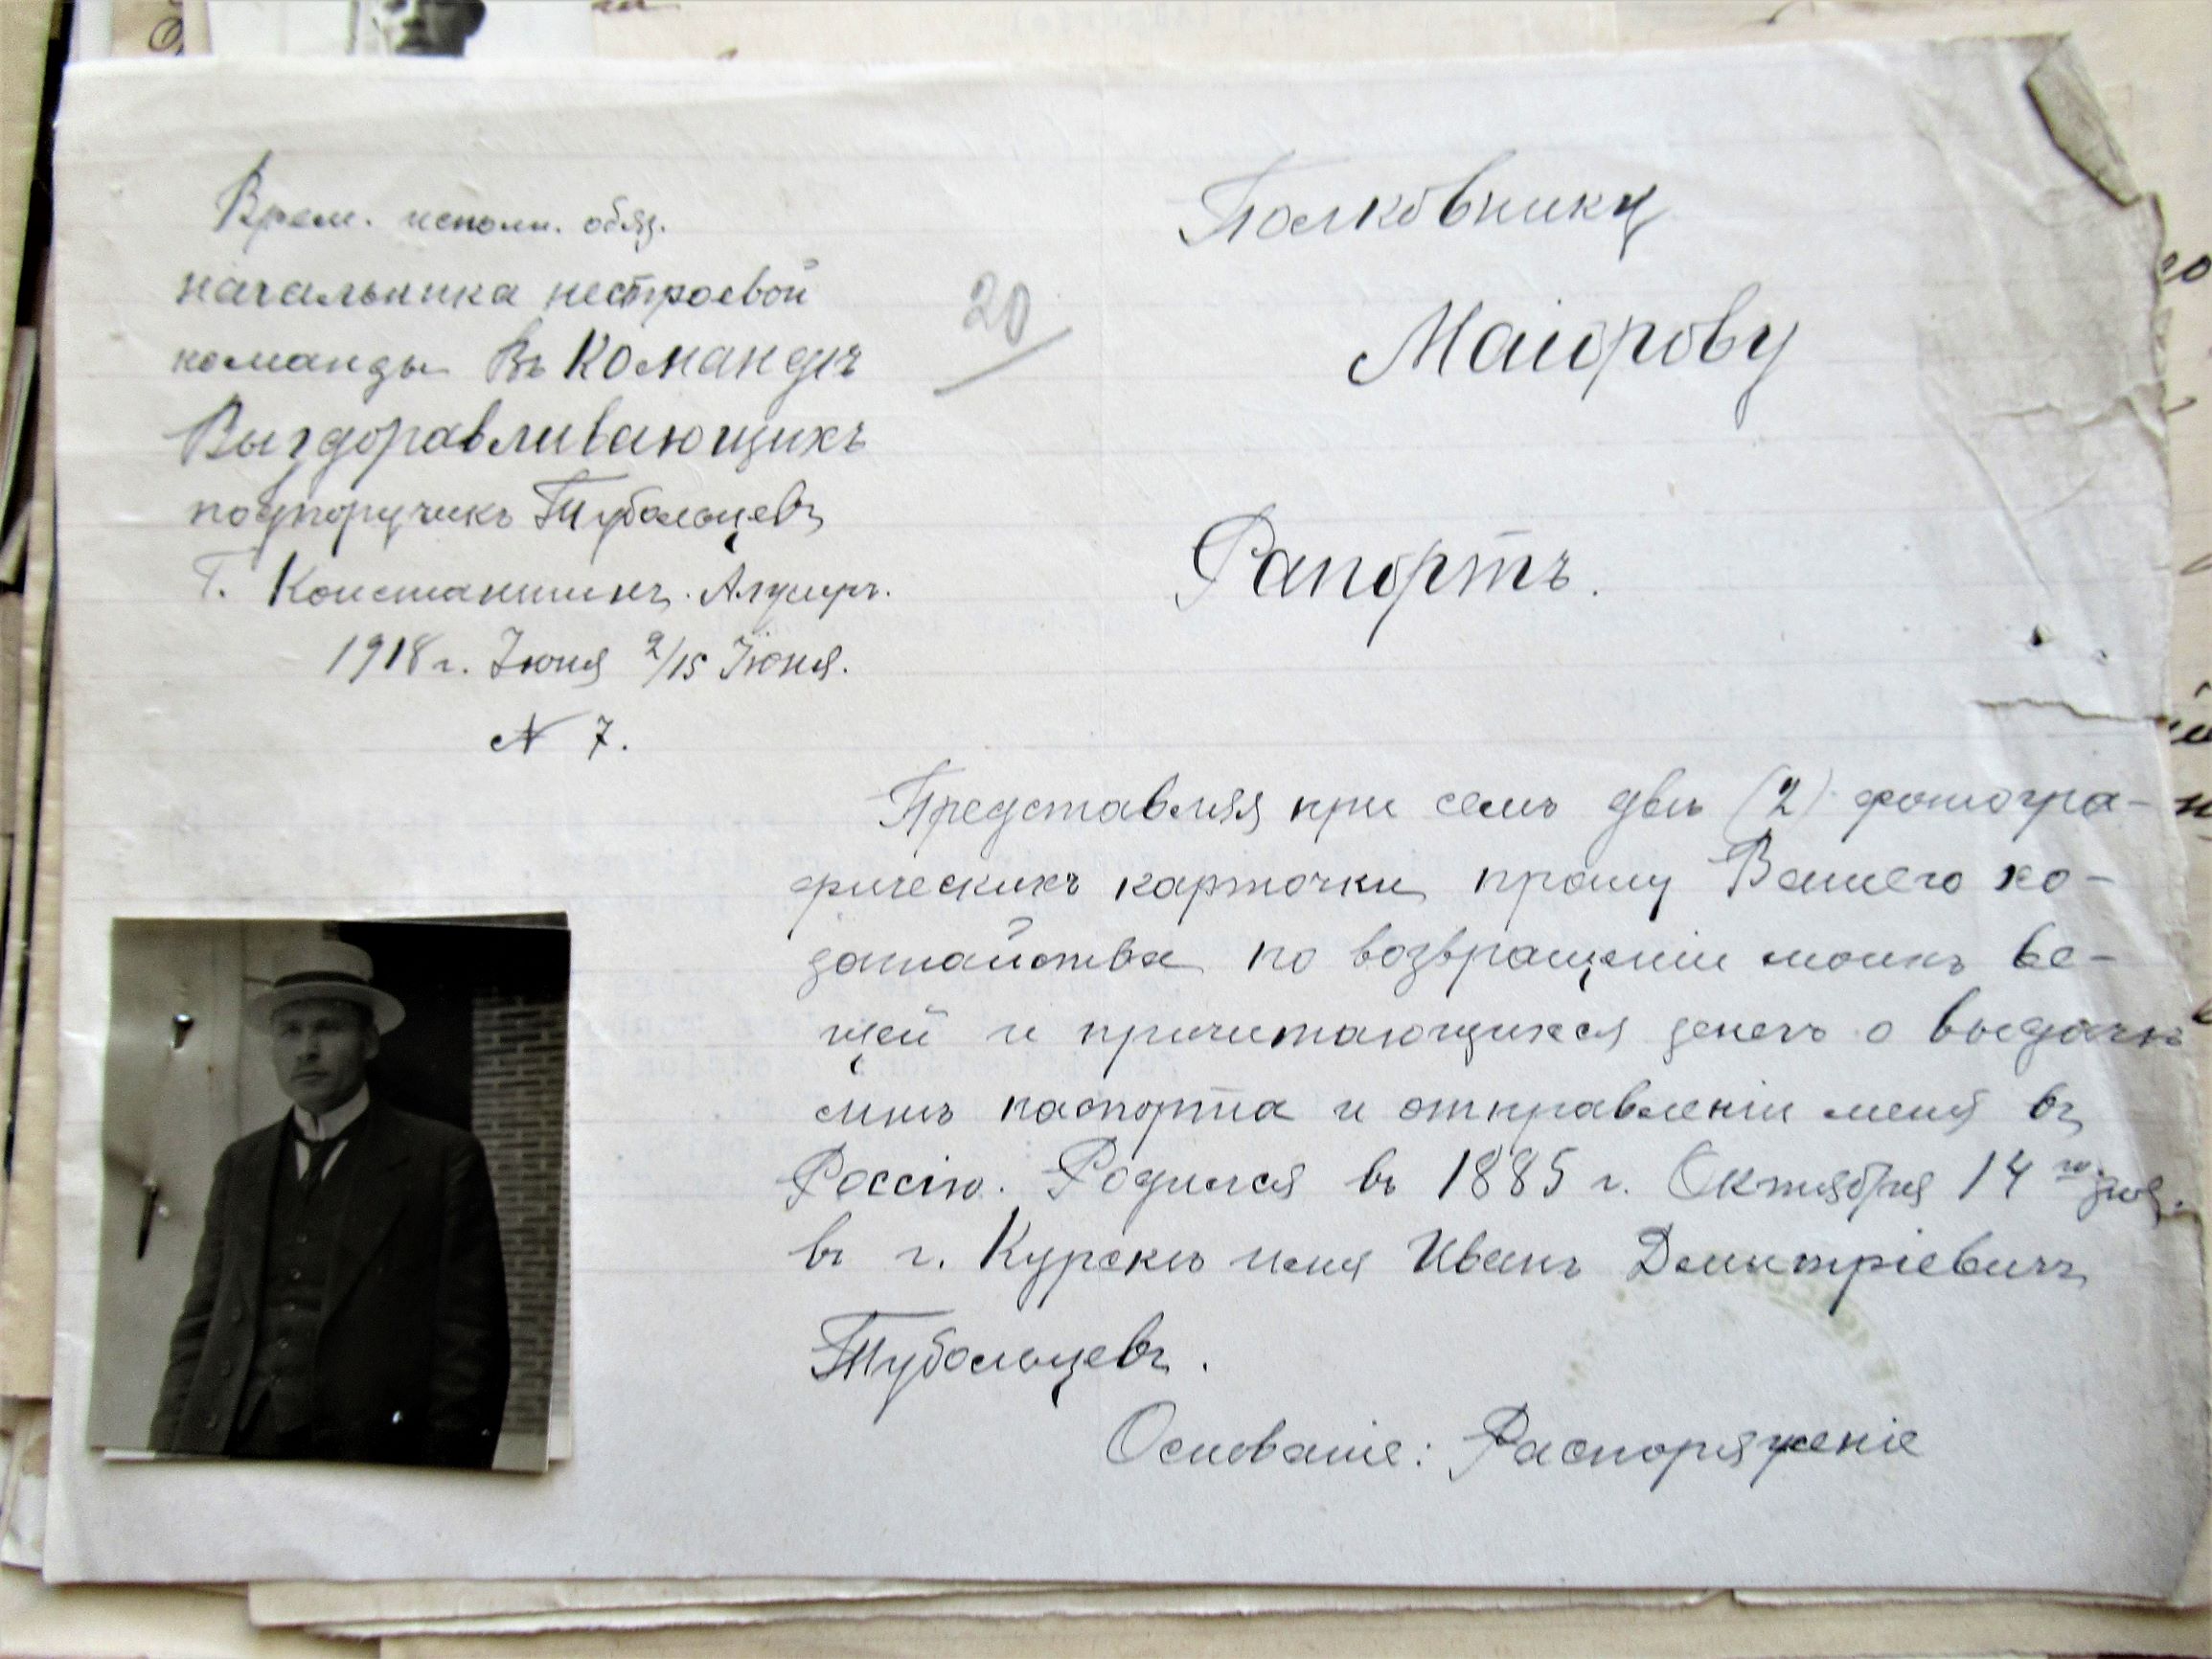 Врем. исполн. обяз.
начальника нестроевой
команды Въ Командѣ
Выздоравливающихъ
подпоручикъ Тубольцевъ
Г. Константинъ. Алжиръ.
1918 г. Июня 2/15 Июня.
N 7.
20
Полковнику
Маіорову
Рапортъ.
Представляя при семъ двѣ (2) фотогра-
фическихъ карточки прошу Вашего хо-
датайства по возвращеніи моихъ ве-
щей и причитающихся денегъ о выдачѣ
мнѣ паспорта и отправленіи меня въ
Россію. Родился въ 1885 г. Октября 14 го дня.
въ г. Курскѣ имя Иванъ Дмитріевичъ
Тубольцевъ.
Основаніе: Распоряженіе